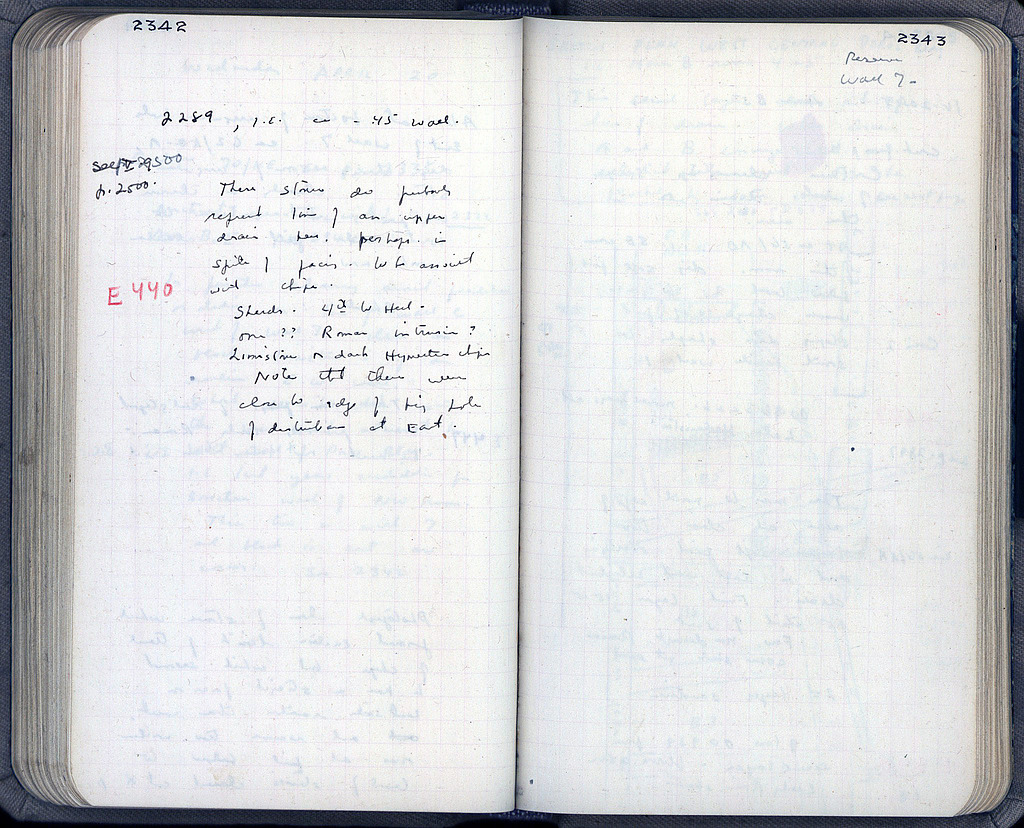 2342
2289, i.e. on 45 wall.
p. 2500.
These stones do perhaps
represent line of an upper
drain here. perhaps. in
spite of facing. to be associat
with chips.
E 440
Sherds. 4th to Hell.
one?? Roman intrusion?
Limestone & dark Hymettus chips
Note tht these were
close to edge of big hole
of disturban at East.
2343
Reserve
Wall 7-